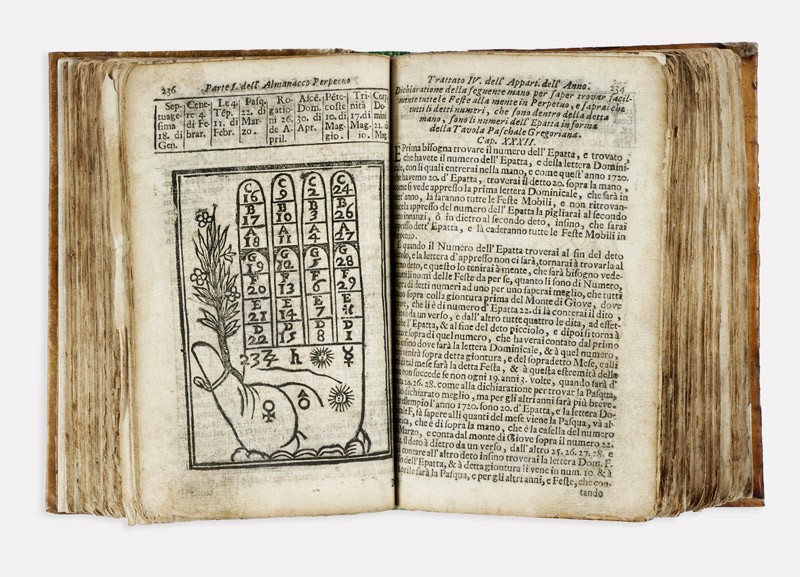 236 Parte I. dell' Almanacco Perpetuo
Sep- tuage- sima 18. di Gen.
Cene- re 4. di Fe- brar.
Le 4 Tép. 11. di Febr.
Pasq. 22. di Mar- zo.
Ro- gatio- ni 26. de A- pril.
Ascé. Dom. 30. di Apr.
Péte- coste 10. di Mag- gio.
Tri- nità 17. di Mag- 
Corp. Do- mini 21. di Mag.
C C C C
16 9 2 24
B B B B
17 10 3 26
A A A A
18 11 4 27
G G G G
19 12 5 28
F F F F
20 13 6 29
E E E E
21 14 7
D D D D
22 15 8 1
23 ♃ ♄ ☿
♀
Trattato IV. dell' Appart. dell' Anno. 234
Dichiaratione della seguente mano per saper trovar facil-
mente tutte le Feste alla mente in Perpetuo, e saprai che
tutti li detti numeri, che sono dentro della detta
mano, sono li numeri dell' Epatta in forma
della Tavola Paschale Gregoriana.
Cap. XXXII.
E Prima bisogna trovare il numero dell' Epatta, e trovato,
che havete il numero dell' Epatta, e della lettera Domini-
cale, con li quali entrerai nella mano, e come quest' anno 1720.
havemo 20. d' Epatta, troverai il detto 20. sopra la mano,
come si vede appresso la prima lettera Dominicale, che sarà in
anno, la saranno tutte le Feste Mobili, e non ritrovan-
appresso del numero dell' Epatta la pigliarai al secondo
innanzi, ò in dietro al secondo deto, insino, che sarai
appresso dett' Epatta, e là caderanno tutte le Feste Mobili in
perpetuo.
E quando il Numero dell' Epatta troverai al fin del deto
e la lettera d' appresso non ci sarà, tornarai à trovarla al
primo deto, e questo lo tenirai à mente, che sarà bisogno vede-
li nomi delle Feste da per se, quanto li sono di Numero,
di detti numeri ad uno per uno saperai meglio, che tutti
sopra colla giontura prima del Monte di Giove, dove
che li è di numero d' Epatta 22. di là conterai il dito,
da un verso, e dall' altro tutte quattro le dita, ad effet-
che l' Epatta, & al fine del deto picciolo, e dipoi si tornà
sopra di quel numero, che haverai contato dal primo
insino dove sarà la lettera Dominicale, & à quel numero,
venirà sopra detta giontura, e del sopradetto Mese, e alli
di tal mese sarà la detta Festa, & à questa estremità della
non succede se non ogni 19. anni 3. volte, quando sarà d'
26. 28. come alla dichiaratione per trovar la Pasqua,
dichiarato meglio, ma per gli altri anni sarà più breve.
esempio l' anno 1720. sono 20. d' Epatta, e la lettera Do-
F, là saperai alli quanti del mese viene la Pasqua, và al-
che è di sopra la mano, che è la casella del numero
Marzo, e conta dal monte di Giove sopra il numero 22.
deto à dietro da un verso, dall' altro 25. 26. 27. 28. e
contare all' altro deto insino troverai la lettera Dom. F.
dell' Epatta, & à detta giontura li vene in num. 10. & à
Aprile sarà la Pasqua, e per gli altri anni, e Feste, che con-
tando